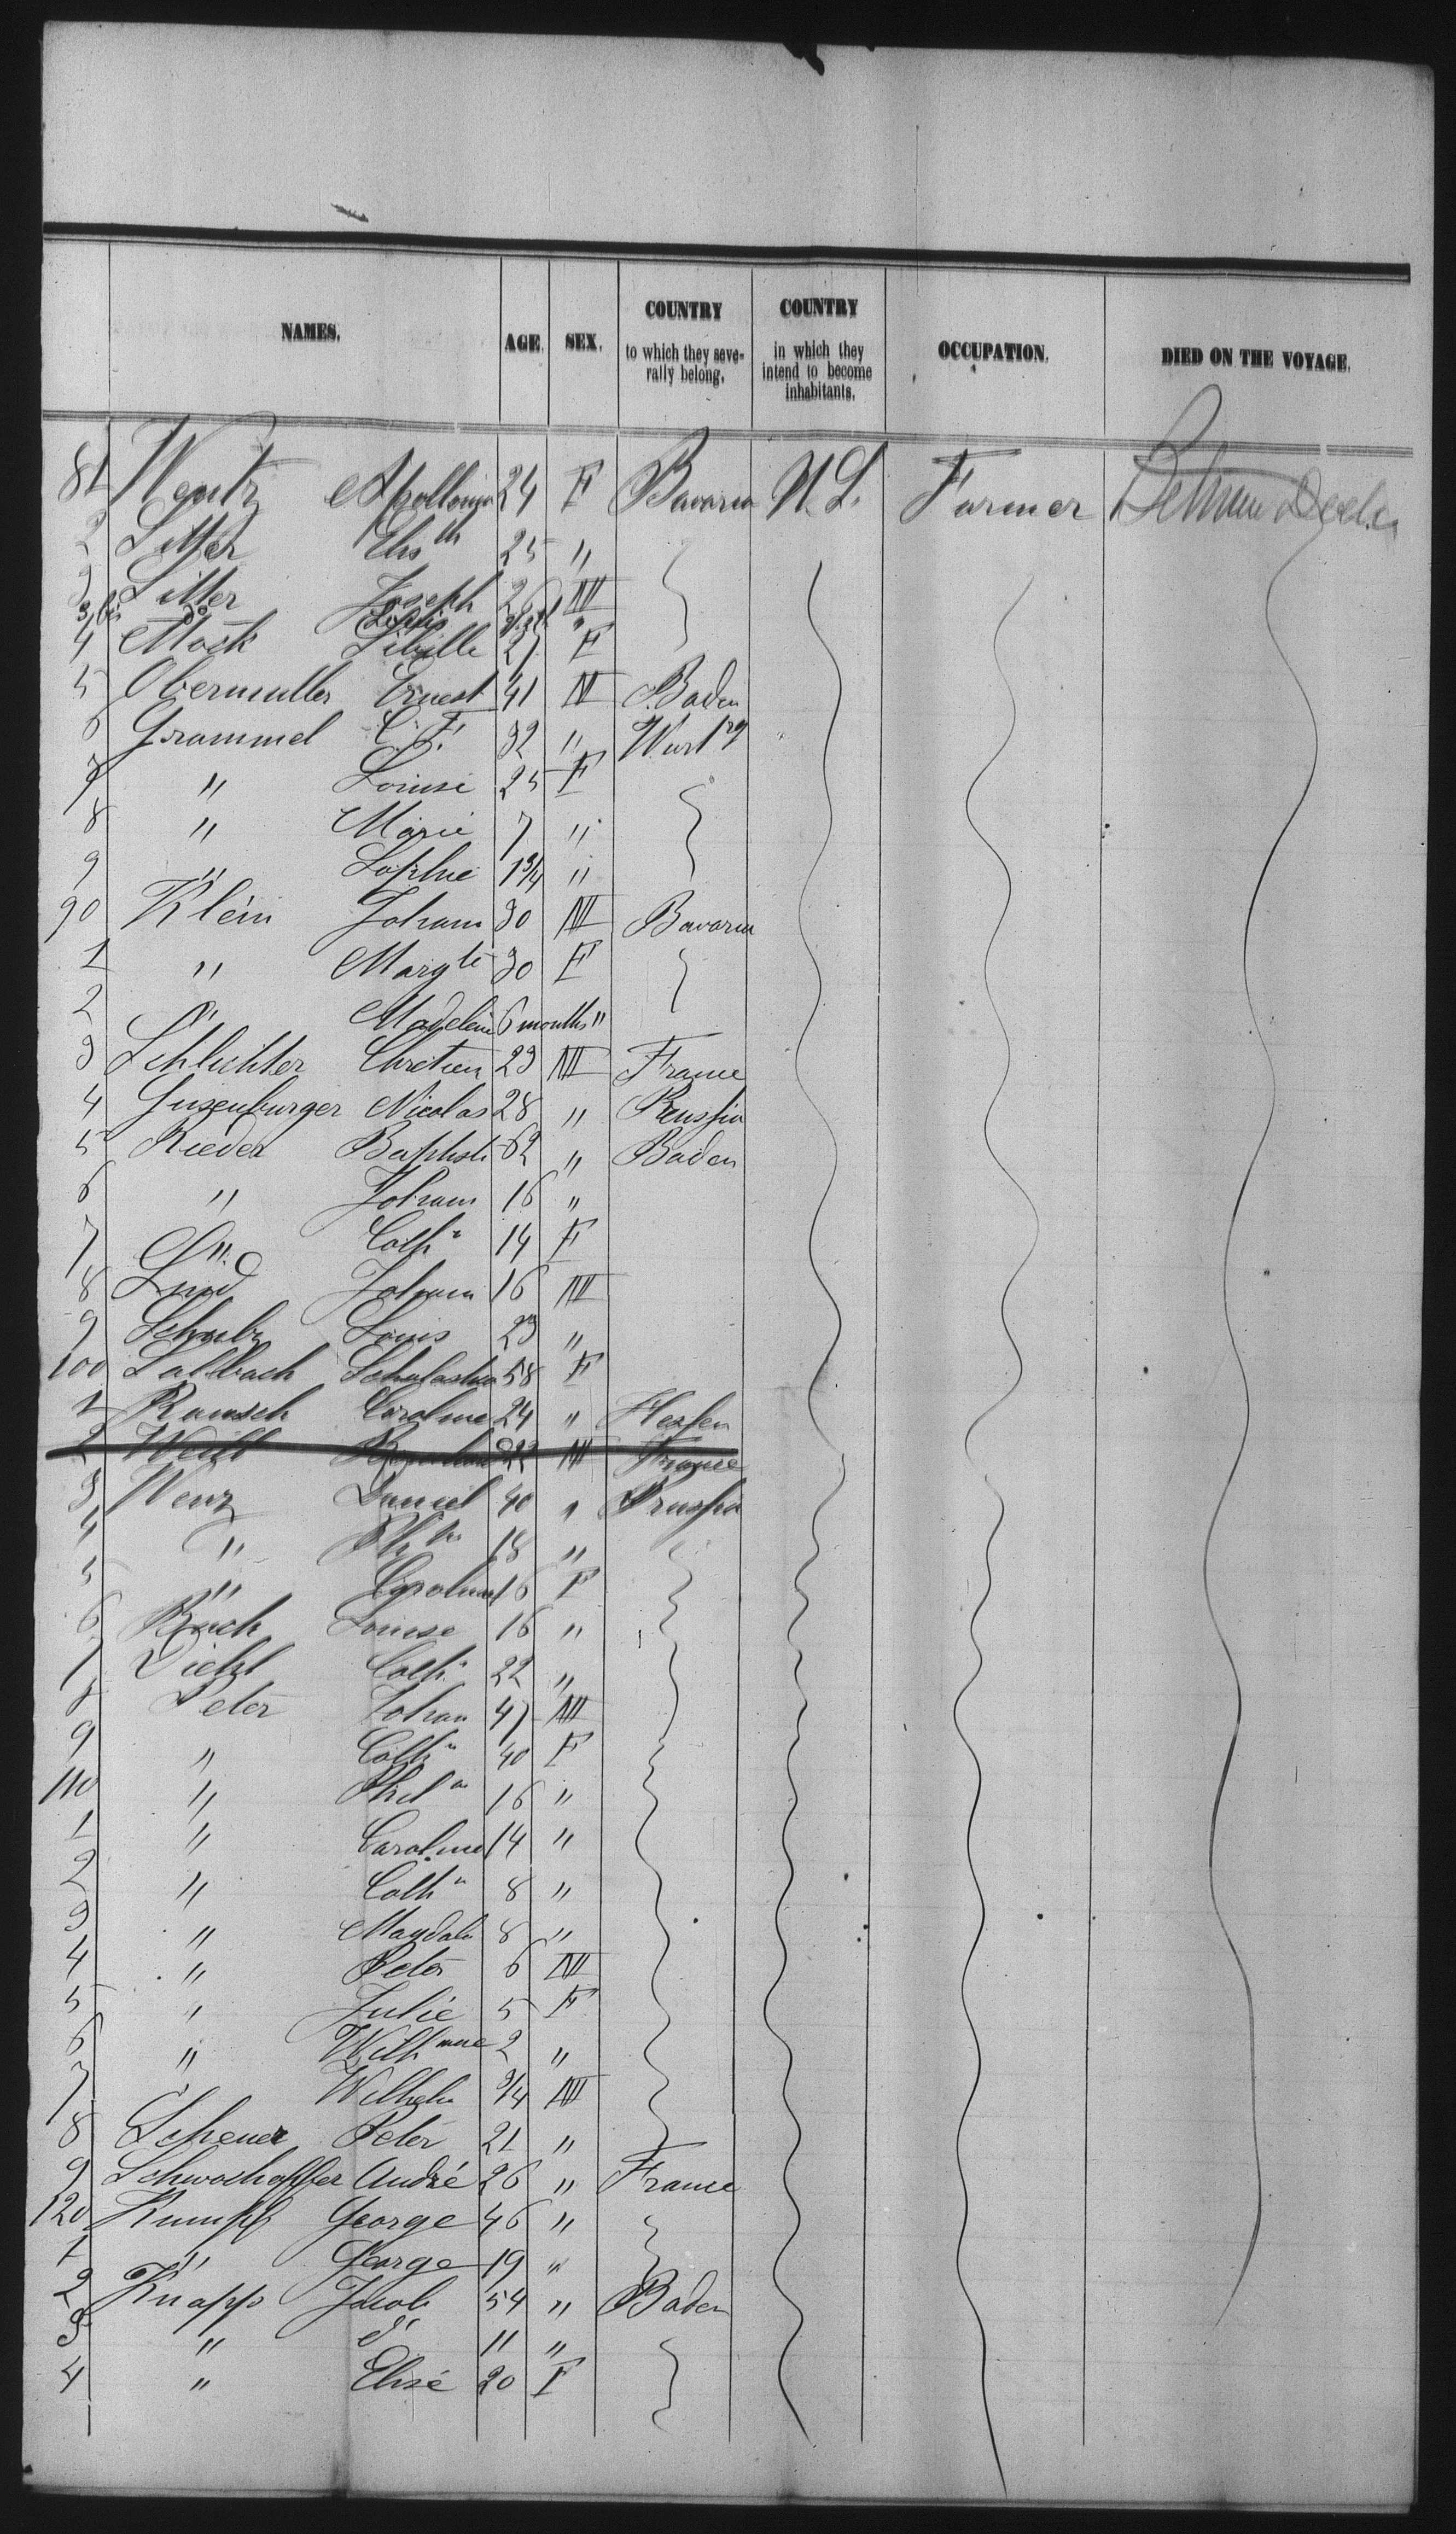 NAMES. AGE. SEX. COUNTRY to which they severally belong. COUNTRY in which they intend to become inhabitants. OCCUPATION. DIED ON THE VOYAGE.
81 Wentz Apollonia 24 F Bavaria U.S. Farmer Between Decks
2 Elis th 25 "
3 Sitter Joseph 26 M
3 bis do "
4 Mock Sibille 27 F
5 Obermuller Ernest 41 M Baden
6 Grammel C. F. 32 " Wurtrg
7 " Louise 25 F
8 " Marie 7 "
9 " Sophie 1 3/4 "
90 Klein Johann 30 M Bavaria
1 " Margte 30 F
2 " Madeleine 6 months "
3 Schlichter Chretien 23 M France
4 Gusenburger Nicolas 28 " Prussia
5 Rieder Baptiste 62 " Baden
6 " Johann 16 "
7 " Cath a 14 F
8 Johann 16 M
9 Louis 23 "
100 Sallbach Scholastica 58 F
1 Rausch Caroline 24 " Hessen
2 Weill 22 M France
3 Wenz Daniel 40 " Prussia
4 " 18 "
5 " Caroline 16 F
6 Ruch Louise 16 "
7 Diehl Cath a 22 "
8 Peter Johan 47 M
9 " Cath a 40 F
110 " Phil a 16 "
1 " Caroline 14 "
2 " Cath a 8 "
3 " Magdal 8 "
4 " Peter 6 M
5 " Julie 5 F
6 " Wilh mne 2 "
7 " Wilhelm 3/4 M
8 Scheuer Peter 21 "
9 Schwoshoffer André 26 " France
120 Rumpf George 46 "
1 " George 19 "
2 Knapp Jacob 54 " Baden
3 " do 11 "
4 " Elise 20 F